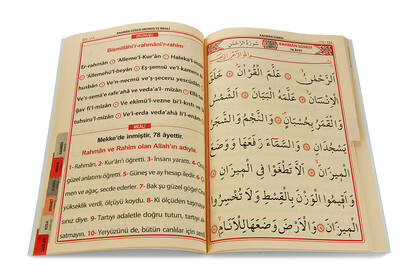 RAHMÂN SÛRESİ OKUNUŞ VE MEÂLİ
OKUNUŞU
Bismillâhi'r-rahmâni'r-rahîm
Er-rahmân ۞ 'Alleme'l-Kur'ân ۞ Halekal
۞ 'Allemehü'l-beyân ۞ Eş-şemsü ve'l-kameru
husbân ۞ Ve'n-necmü ve'ş-şeceru yescüdân
Ve's-semâ'e rafe'ahâ ve veda'a'l-mîzân ۞ El
ğav fi'l-mîzân ۞ Ve ekîmü'l-vezne bi'l-kıstı
tuhsiru'l-mîzân ۞ Ve'l-erda veda'ahâ li'l-enâm
MEÂLİ
Mekke'de inmiştir, 78 âyettir.
Rahmân ve Rahîm olan Allah'ın adıyla,
1- Rahmân, 2- Kur'ân'ı öğretti. 3- İnsanı yarattı.
güzel anlatımı öğretti. 5- Güneş ve ay hesap iledir.
men ve ağaç, secde ederler. 7- Bak şu güzel göğe!
yükseklik verdi, ölçüyü koydu. 8- Ki ölçüden taşmayın
sınız diye. 9- Tartıyı adaletle doğru tutun, tartıyı
satmayın. 10- Yeryüzünü de, bütün canlılar için
RAHMÂN SÛRESİ
سُورَةُ الرَّحْمٰنِ
RAHMÂN SÛRESİ
78 ÂYET
اَلرَّحْمٰنُ ۞ عَلَّمَ الْقُرْاٰنَ ۞ خَلَقَ
الْاِنْسَانَ ۞ عَلَّمَهُ الْبَيَانَ ۞ اَلشَّمْسُ
وَالْقَمَرُ بِحُسْبَانٍ ۞ وَالنَّجْمُ وَالشَّجَرُ
يَسْجُدَانِ ۞ وَالسَّمَاءَ رَفَعَهَا وَوَضَعَ
الْمِيزَانَ ۞ اَلَّا تَطْغَوْا فِي الْمِيزَانِ ۞
وَاَقِيمُوا الْوَزْنَ بِالْقِسْطِ وَلَا تُخْسِرُوا
الْمِيزَانَ ۞ وَالْاَرْضَ وَضَعَهَا لِلْاَنَامِ ۞